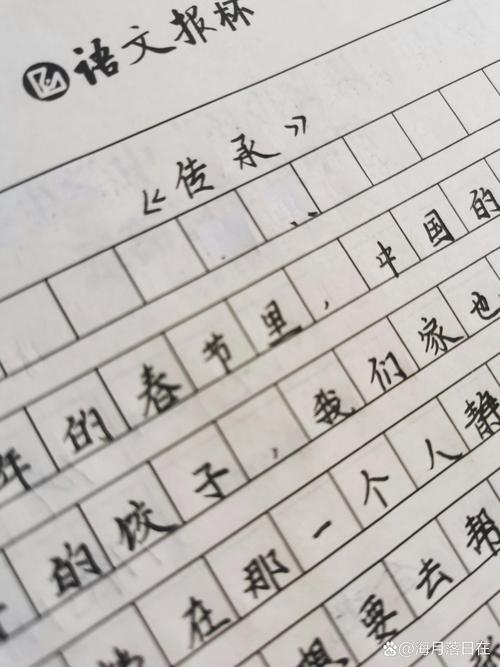 语文报杯
《传承》
年的春节里，中国的
的饺子，我们家也
在那一个人静
想要去帮
Bai百家号/海月落日在